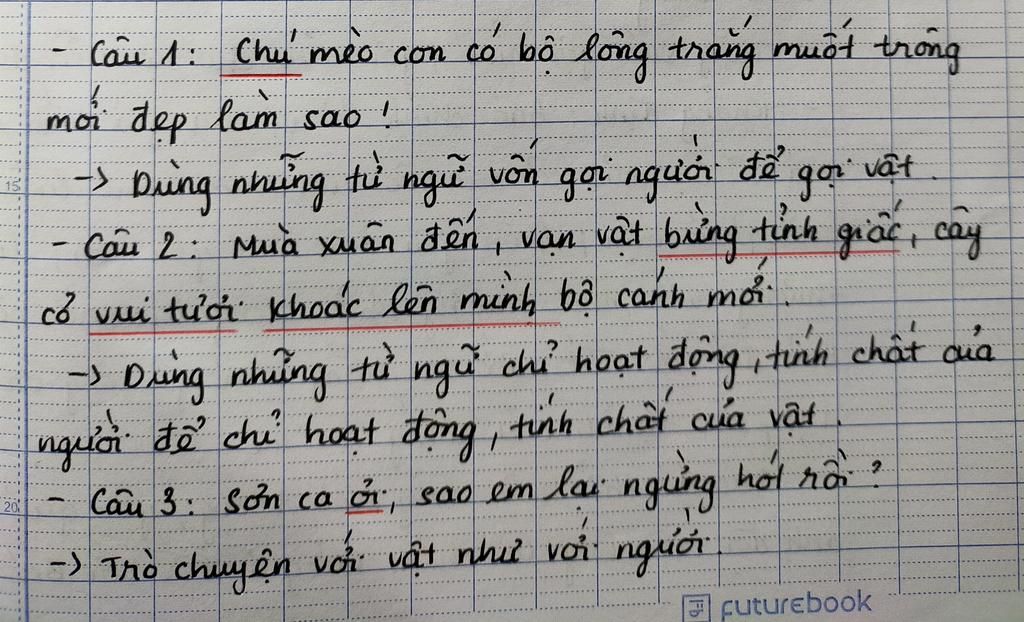 - Câu 1: Chú mèo con có bộ lông trắng muốt trông
mới đẹp làm sao!
-> Dùng những từ ngữ vốn gọi người để gọi vật.
15
- Câu 2: Mùa xuân đến, vạn vật bừng tỉnh giấc, cây
cỏ vui tươi khoác lên mình bộ cánh mới.
-> Dùng những từ ngữ chỉ hoạt động, tính chất của
người để chỉ hoạt động, tính chất của vật.
- Câu 3: Sơn ca ơi, sao em lại ngừng hót rồi?
20
-> Trò chuyện với vật như với người.
futurebook